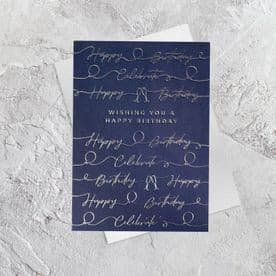 Happy Birthday
Celebrate
Happy Birthday
WISHING YOU A
HAPPY BIRTHDAY
Happy Birthday
Celebrate
Birthday Happy
Celebrate